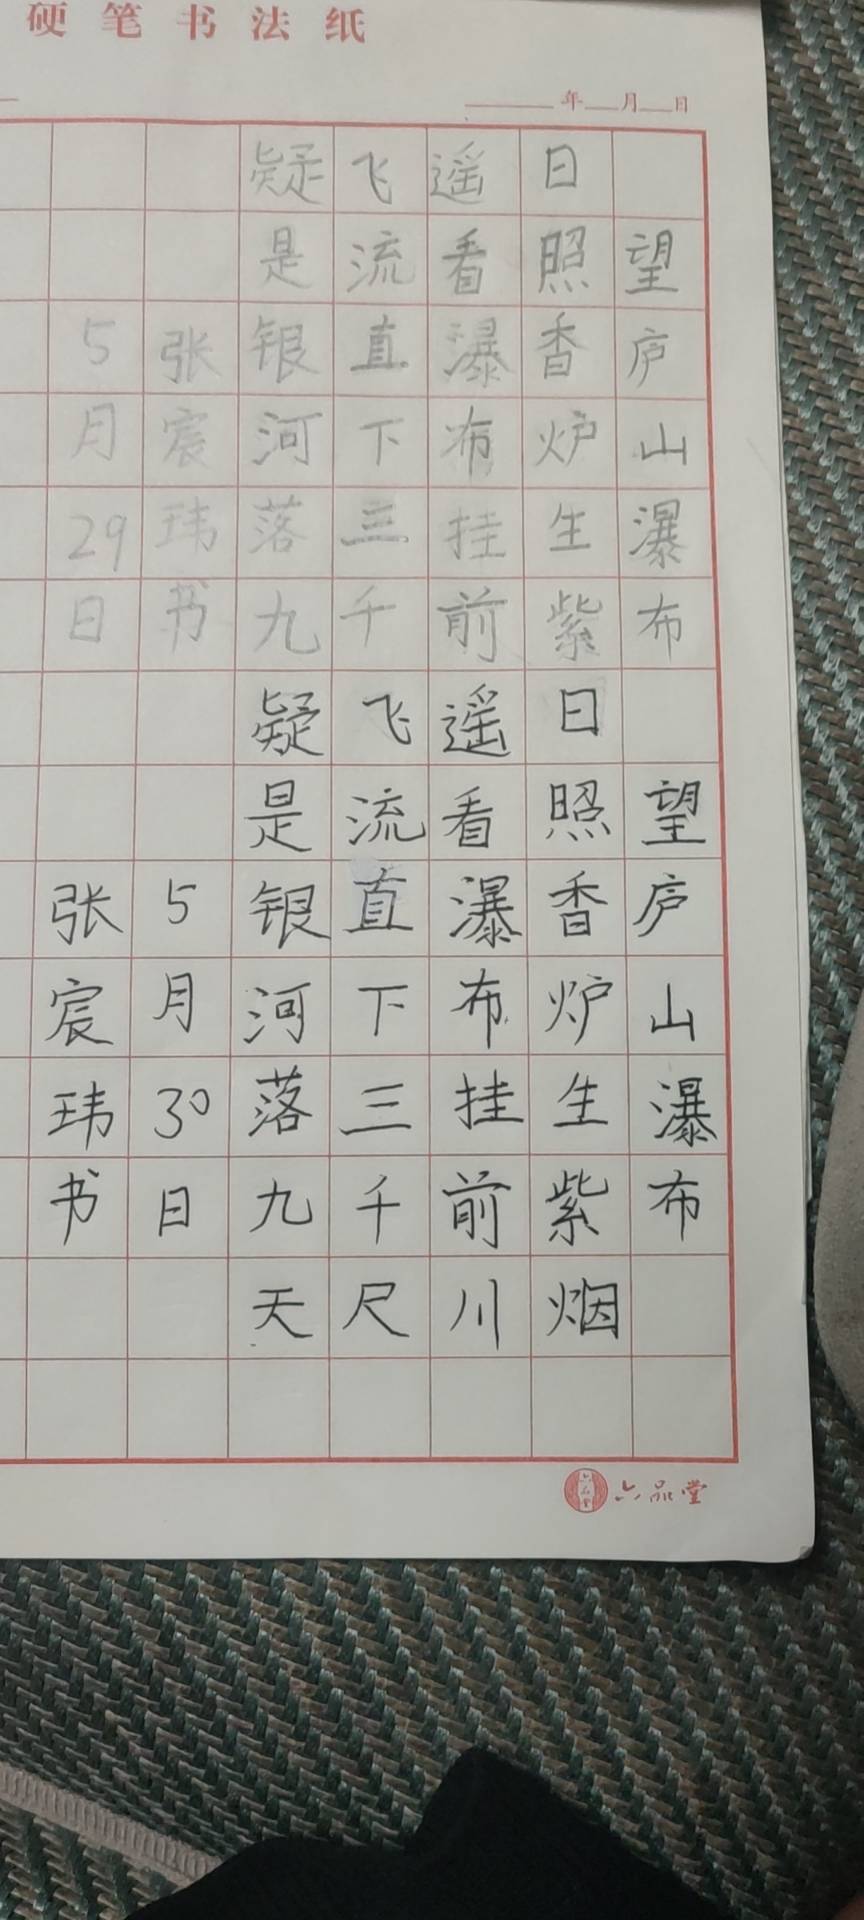 硬笔书法纸
年 月 日
望庐山瀑布
日照香炉生紫
遥看瀑布挂前
飞流直下三千
疑是银河落九
张宸玮书
5月29日
望庐山瀑布
日照香炉生紫烟
遥看瀑布挂前川
飞流直下三千尺
疑是银河落九天
5月30日
张宸玮书
六品堂